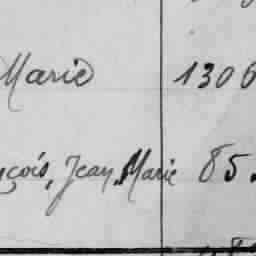 Marie 1306
nçois, Jean Marie 85